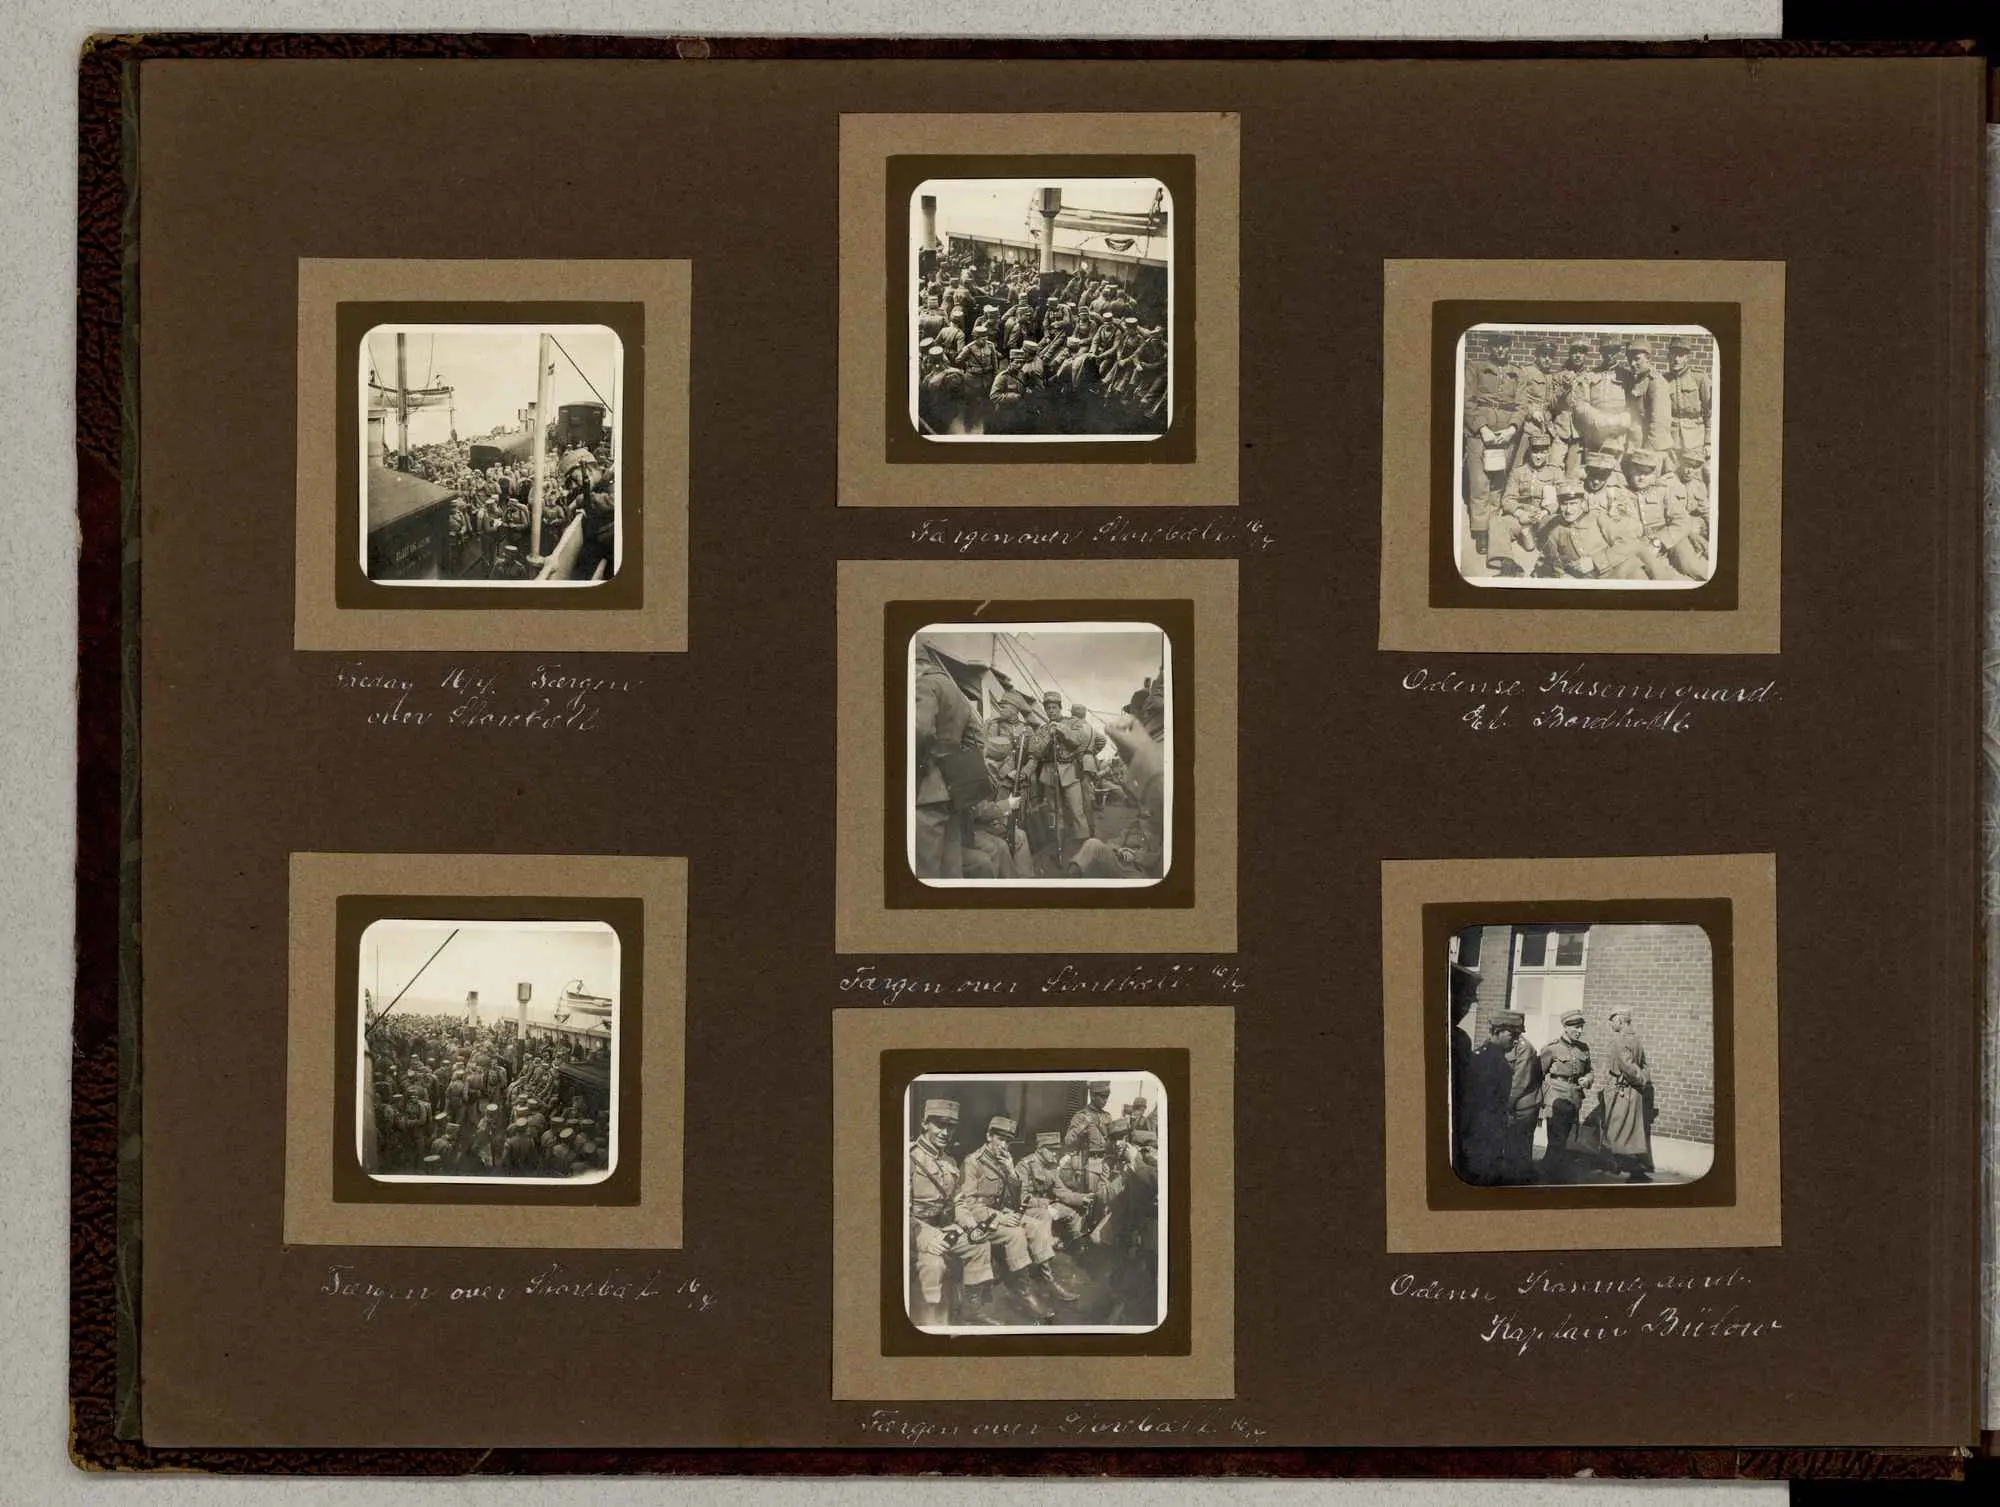 Fredag 16/4. Færgen
over Storebælt
Færgen over Storebælt 16/4
Færgen over Storebælt 16/4
Færgen over Storebælt 16/4
Færgen over Storebælt 16/4
Odense Kaserneguaard.
Et Bordhold
Odense Kasernegaard.
Kaptain Bülow